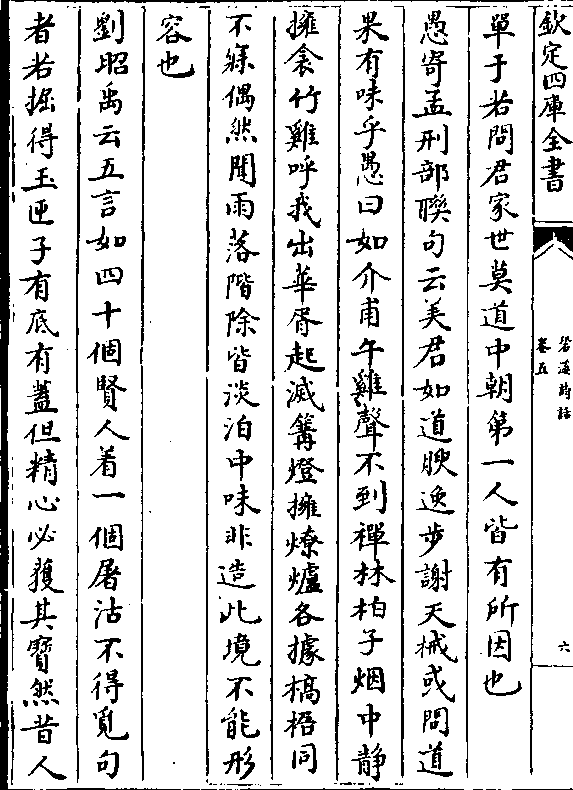 欽定四庫全書
䂬溪詩話
卷五
六
單于若問君家世莫道中朝第一人皆有所因也
愚寄孟刑部聯句云美君知道腴逸步謝天械或問道
果有味乎愚曰如介甫午雞聲不到禪林柏子烟中靜
擁衾竹雞呼我出華胥起滅篝燈擁燎爐各據槁梧同
不寐偶然聞雨落階除皆淡泊中味非造此境不能形
容也
劉昭禹云五言如四十個賢人着一個屠沽不得覓句
者若掘得玉匣子有底有蓋但精心必獲其寳然昔人